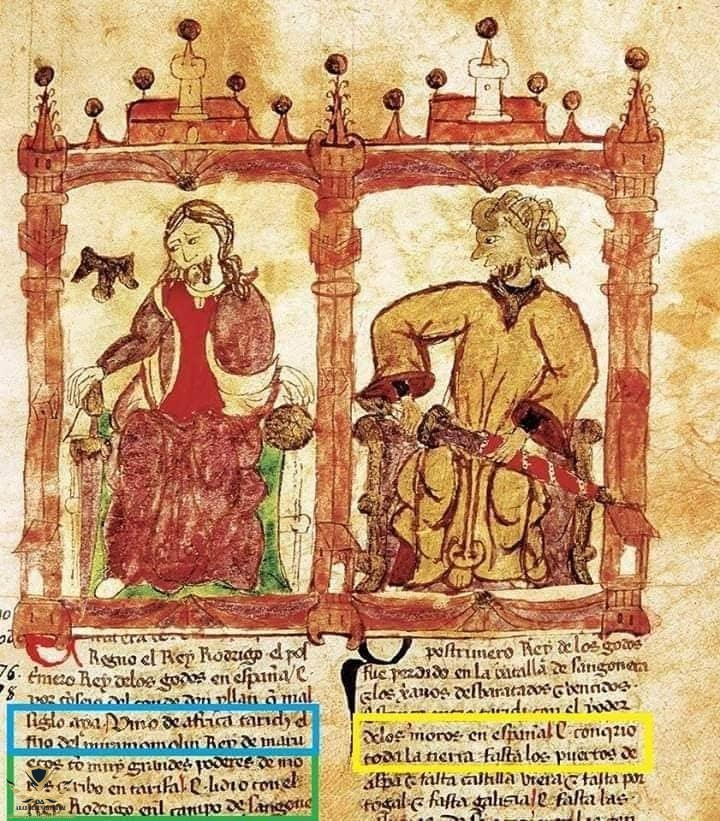 Regno el Rey Rodrigo el pos
trimero Rey delos godos en españa/ E
por conde don yllan q̃ mal
siglo aya / Vino de africa tarich el
fijo del miramomolin Rey de marru
ecos cõ muy grandes poderes de mo
Aribo en tarifa/ E lidio con el
Rey Rodrigo enl campo de sangone
76.
8
postrimero Rey de los godos
fue perdido en la batalla de sangonera
E los xanos desbaratados E vencidos
con el poder
delos moros en españa/ E conqrio
toda la tierra fasta los puertos de
aspa E fasta castilla vieia E fasta por
togal E fasta galizia/ E fasta las